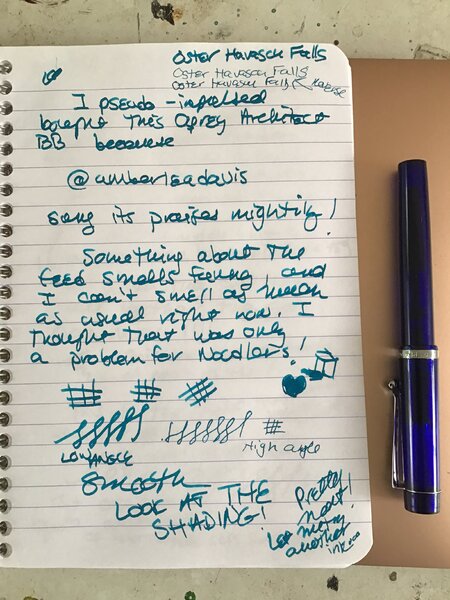 Oster Havasu Falls
Oster Havasu Falls
Oster Havasu Falls reverse
I pseudo-impulsed
bought This Osprey Architect
BB because
@amberleadavis
sang its praises mightily!
Something about The
feed smells funny, and
I can't smell as much
as usual right now. I
Thought That was only
a problem for Noodler's!
LOW ANGLE
High angle
Smooth
LOOK AT THE
SHADING!
Pretty
neat!
another
ink